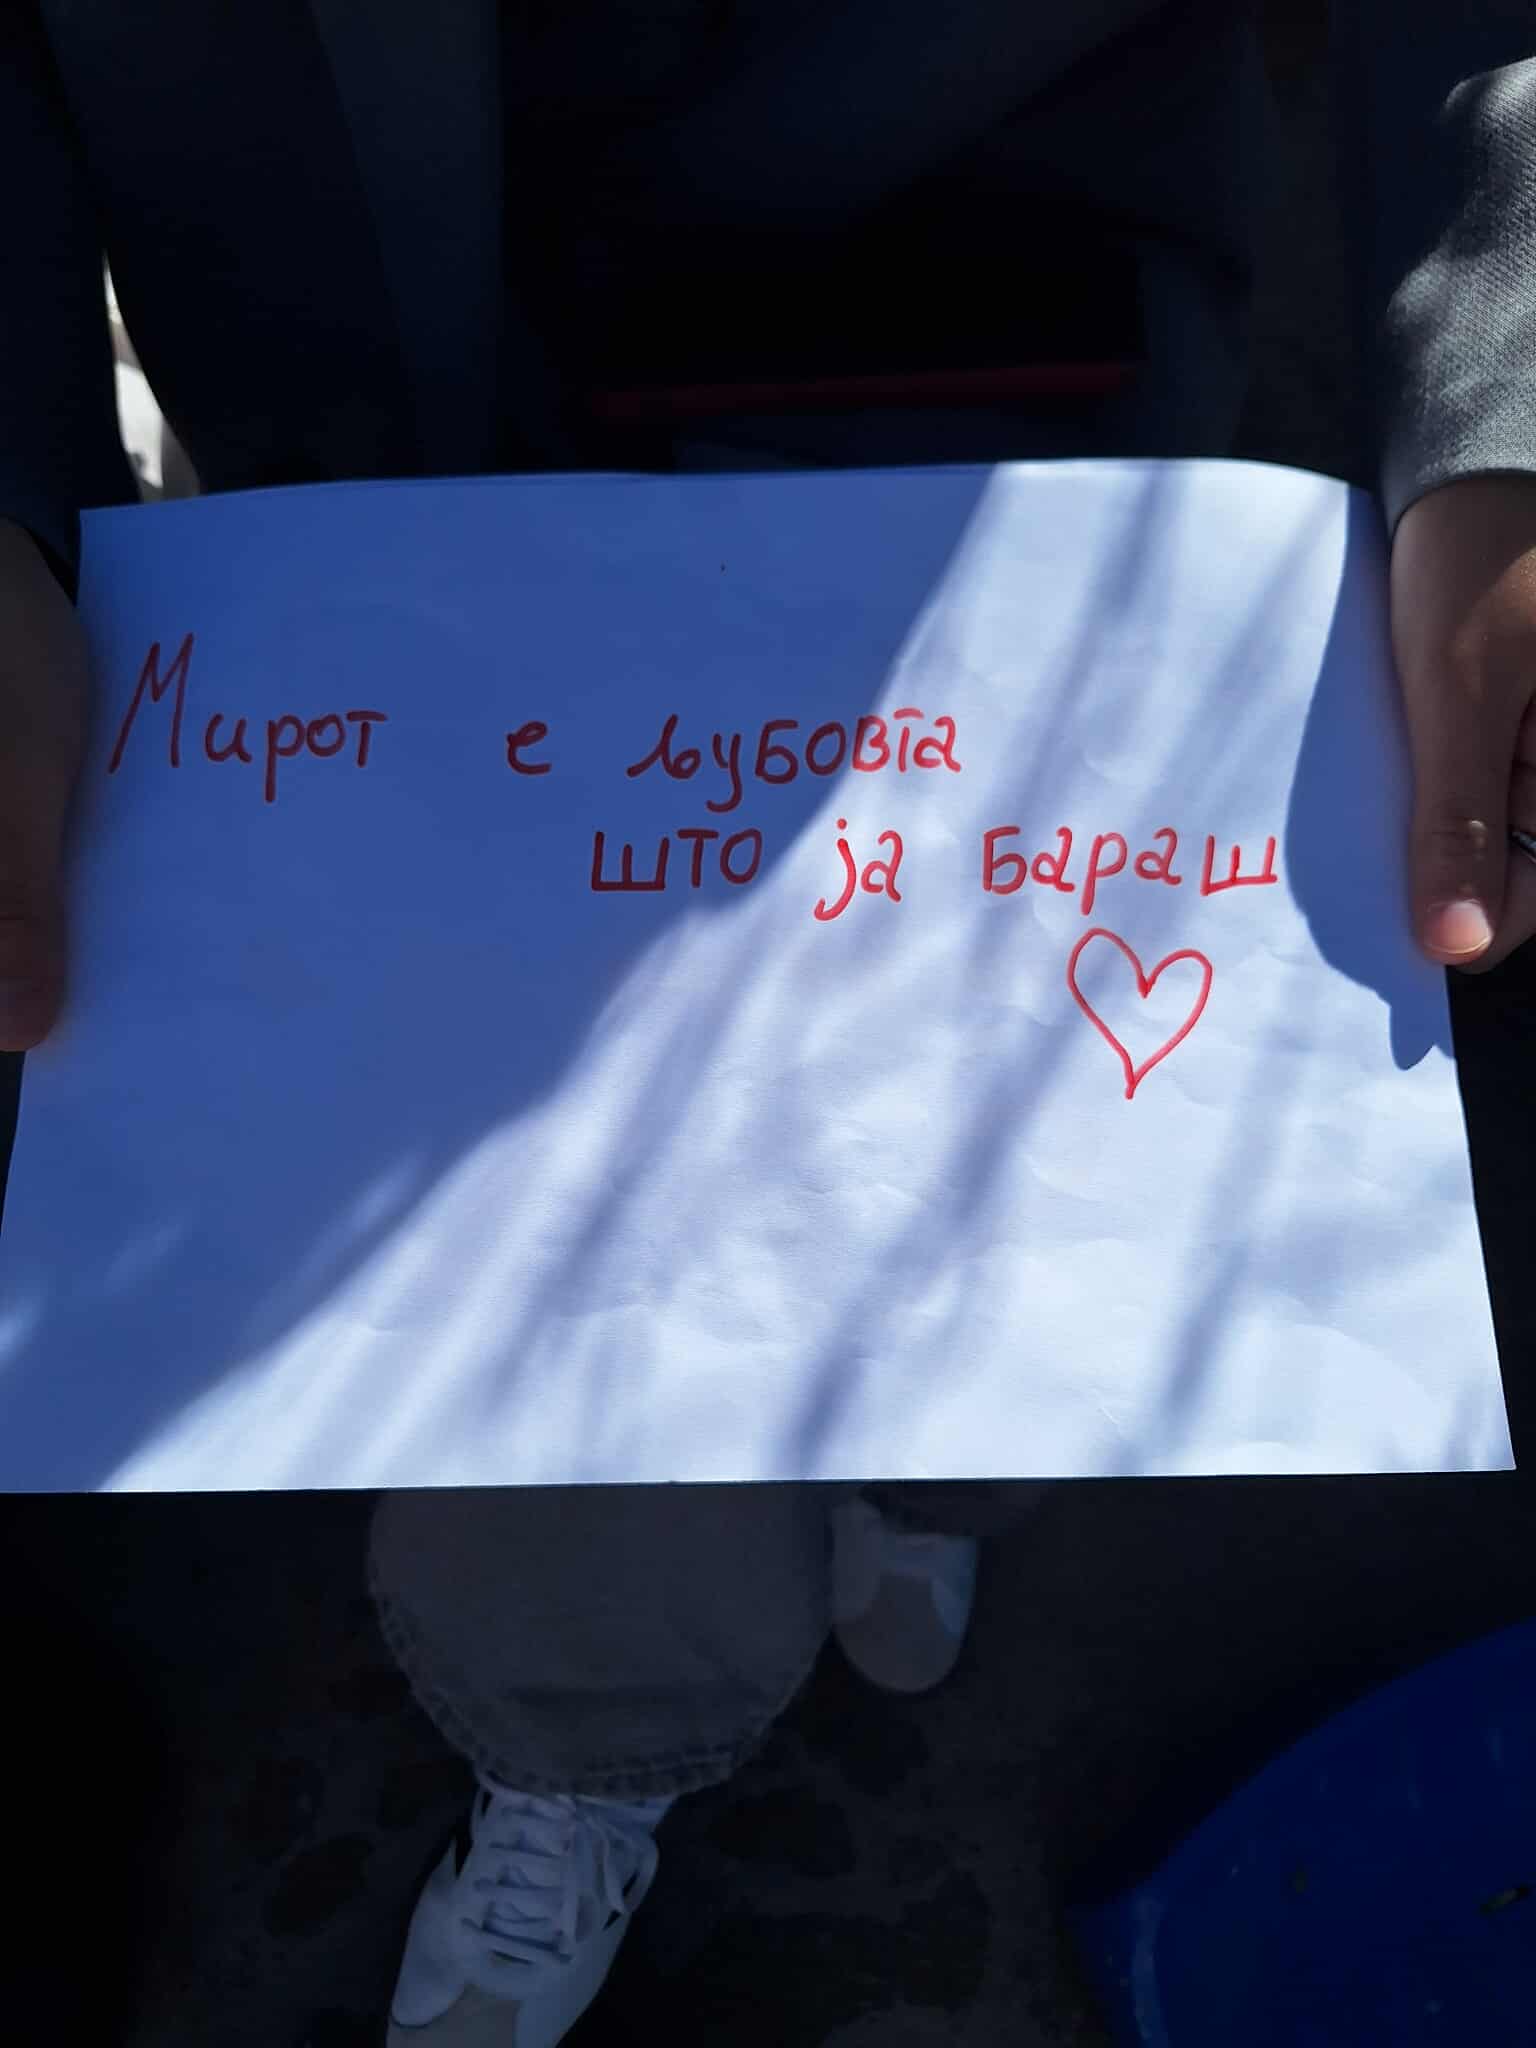 Мирот е љубовта
што ја бараш